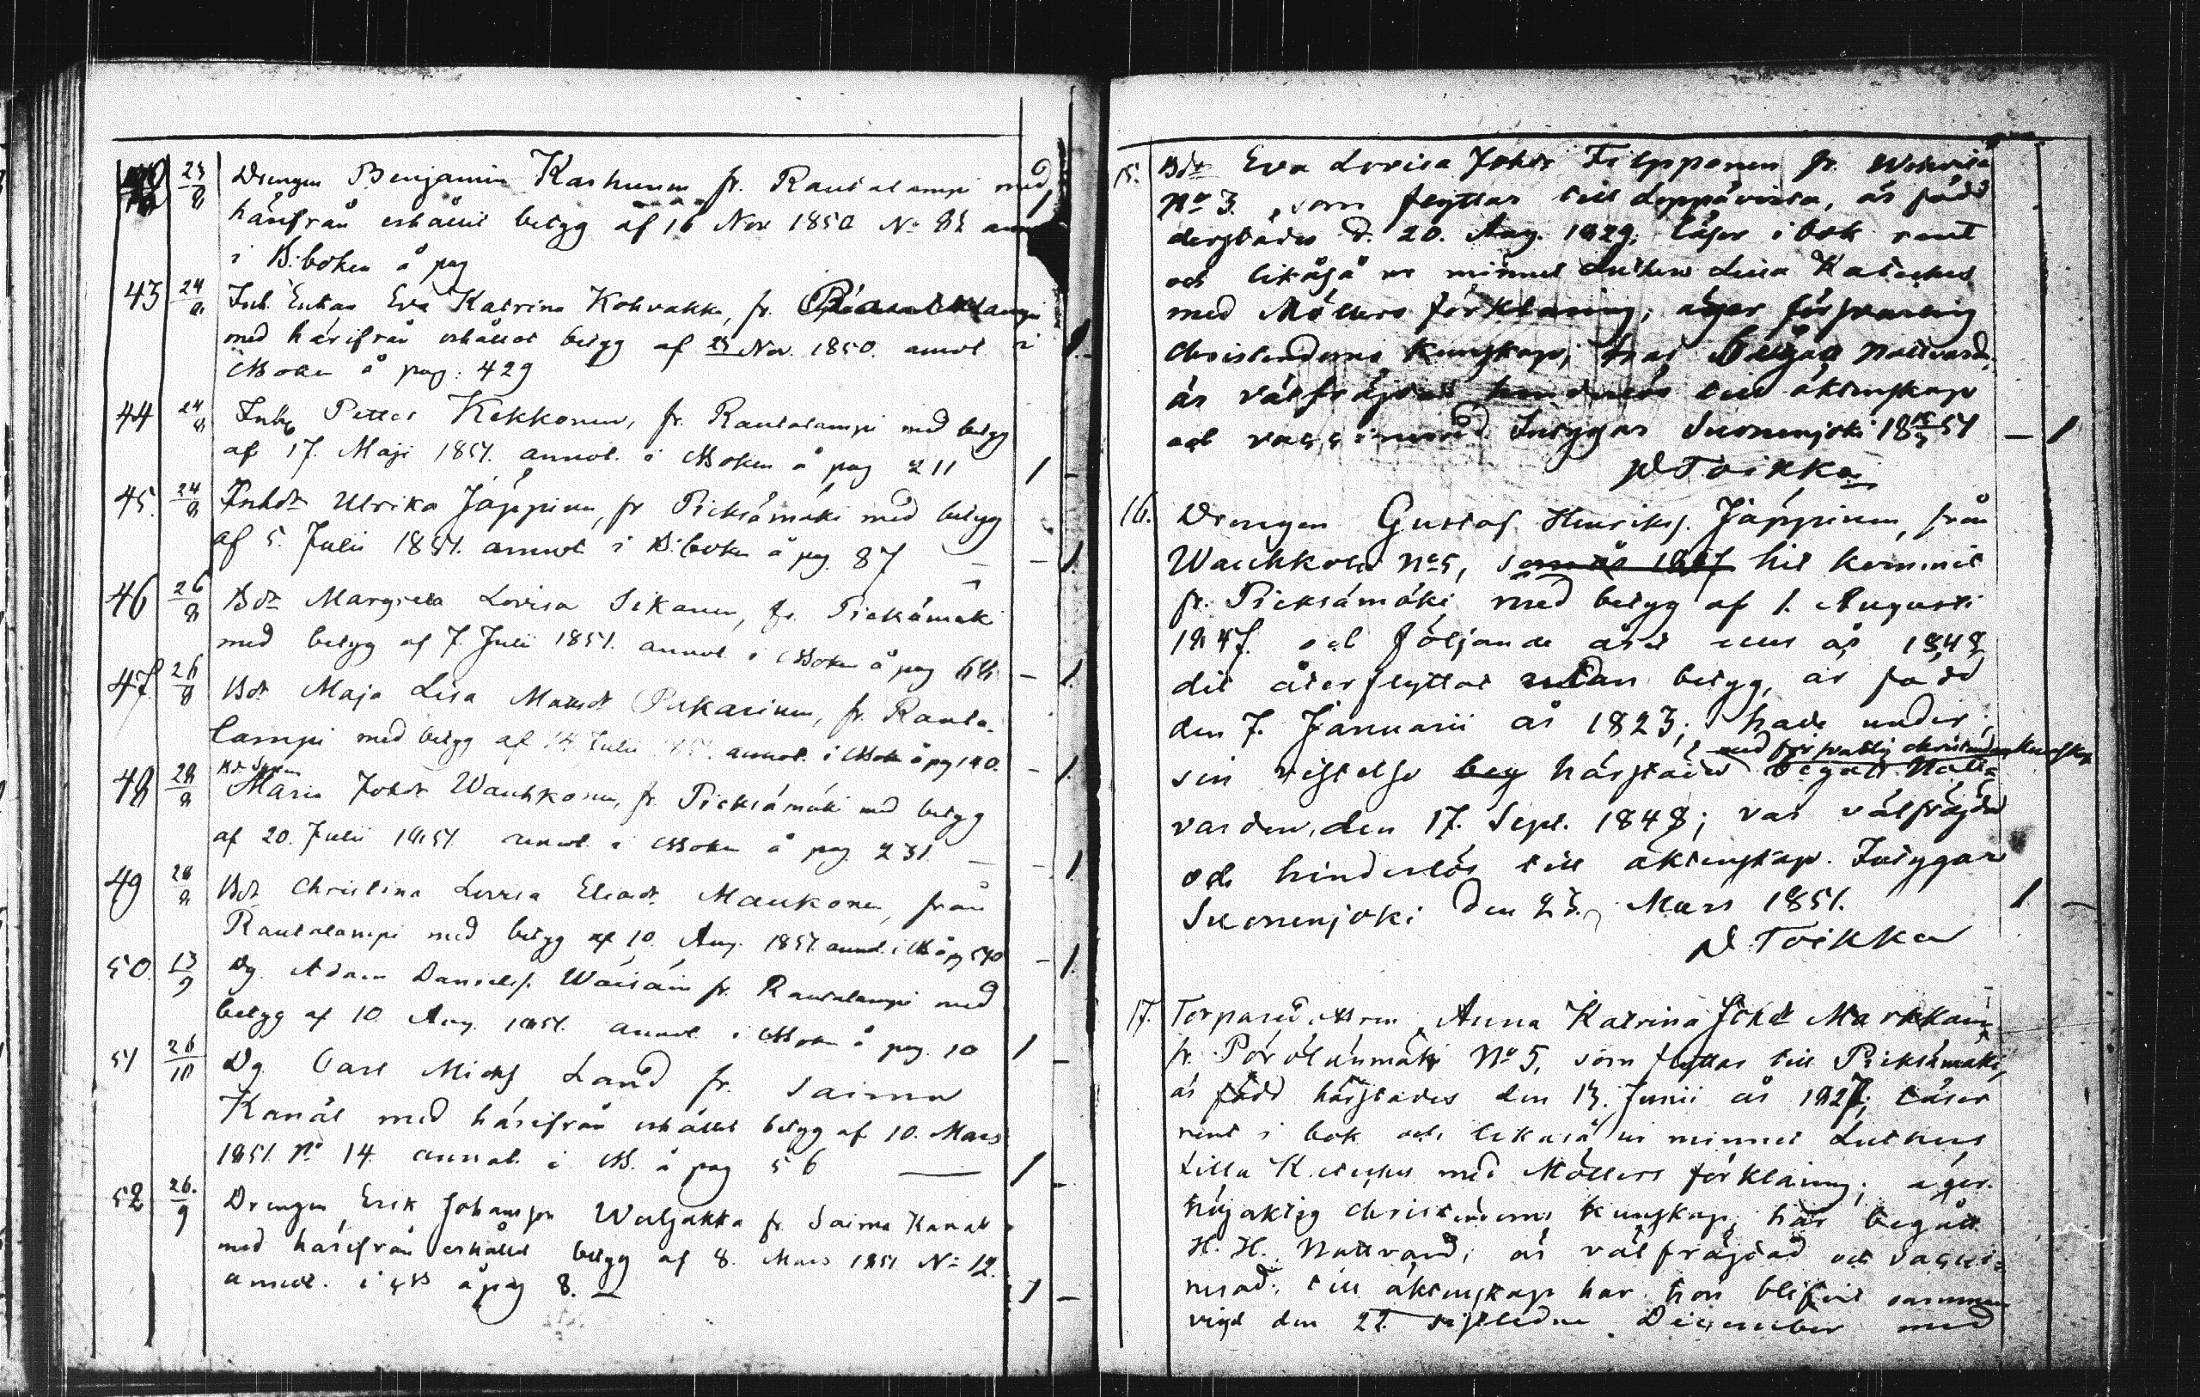 23/8 Drengen Benjamin Karhunen fr. Rautalampi med 1
härifrån erhållit betyg af 16 Nov 1850 No
i B:boken å pag
43 24/8 Inh. Enkan Eva Katrina Kohvakka, fr.
med härifrån erhållet betyg af Nov. 1850. annot. i
Boken å pag: 429
44 24/8 Inh Petter Kekkonen, fr. Rautalampi med betyg
af 17. Maji 1851. annot. i Boken å pag 211 1 -
45. 24/8 Inhdr Ulrika Jäppinen, fr Pieksämäki med betyg
af 5. Julii 1851. annot i B:boken å pag. 87 - - 1.
46 26/8 Bdr Margreta Lovisa Sikanen, fr. Pieksämäki
med betyg af 7. Julii 1851. annot i Boken å pag - 1.
47. 26/8 Bdr Maja Lisa Mattsdr Pukarinen, fr. Rauta-
lampi med betyg af 14 Julii 1851. annot. i Bok å pag 140. - 1.
48 28/8 Maria Johdr Wauhkonen, fr. Pieksämäki med betyg
af 20. Julii 1851. annot. i Boken å pag. 231. - - 1.
49 28/8 Bdr Christina Lovisa Eliasdr Maukonen, från
Rautalampi med betyg af 10. Aug. 1851 annot. i B å pag 540 - 1.
50. 13/9 Dg. Adam Danielss. Wäisäin fr. Rautalampi med
betyg af 10 Aug. 1851. annot i Boken å pag. 10 1 -
51 26/10 Dg. Carl Michss Land fr. Saima
Kanal med härifrån erhållet betyg af 10. Mars
1851. No 14. annot. i B. å pag 56 — 1 -
52 26./9 Drengen Erik Johansson Weljakka fr. Saima Kanal
med härifrån erhållet betyg af 8. Mars 1851 No 12.
annot. i B å pag 8. — 1 -
15. Bdr Eva Lovisa Johdr Filpponen fr.
No 3. som flyttar till Leppävirta, är född
derstädes d. 20. Aug. 1829; läser i bok rent
och likåså ur minnet Luthers Lilla Kateches
med Möllers förklaring; äger försvarlig
christendoms kunskap; har begått Nattvard.
är välfräjdad hinderlös till äktenskap
och vaccinerad. Intygar Suonenjoki 18 51 - 1
P Toikka
16. Drengen Gustaf Henrikss. Jäppinen, från
Wauhkola No 5, som år 1847 hit kommit
fr. Pieksämäki med betyg af 1. Augusti
1847. och följande året eller år 1848
dit återflyttat utan betyg, är född
den 7. Januarii år 1823; hade under
sin vistelse beg härstädes med försvarlig christendoms kunskap begått Natt-
varden, den 17. Sept. 1848; var välfräjdad
och hinderlös till äktenskap. Intygar
Suonenjoki den 23. Mars 1851. 1 -
P. Toikka
17. Anna Katrina Johdr Markkain
fr. Pörölänmäki No 5, som flyttar till Pieksämäki,
är född härstädes den 13. Junii år 1827; läser
rent i bok och likaså ur minnet Luthers
Lilla Kateches med Möllers förklaring; äger
nöjaktig christendoms kunskap; har begått
H. H. Nattvard; är välfräjdad och vacci-
nerad; till äktenskap har hon blifvit samman
vigd den 27. sistledne December med